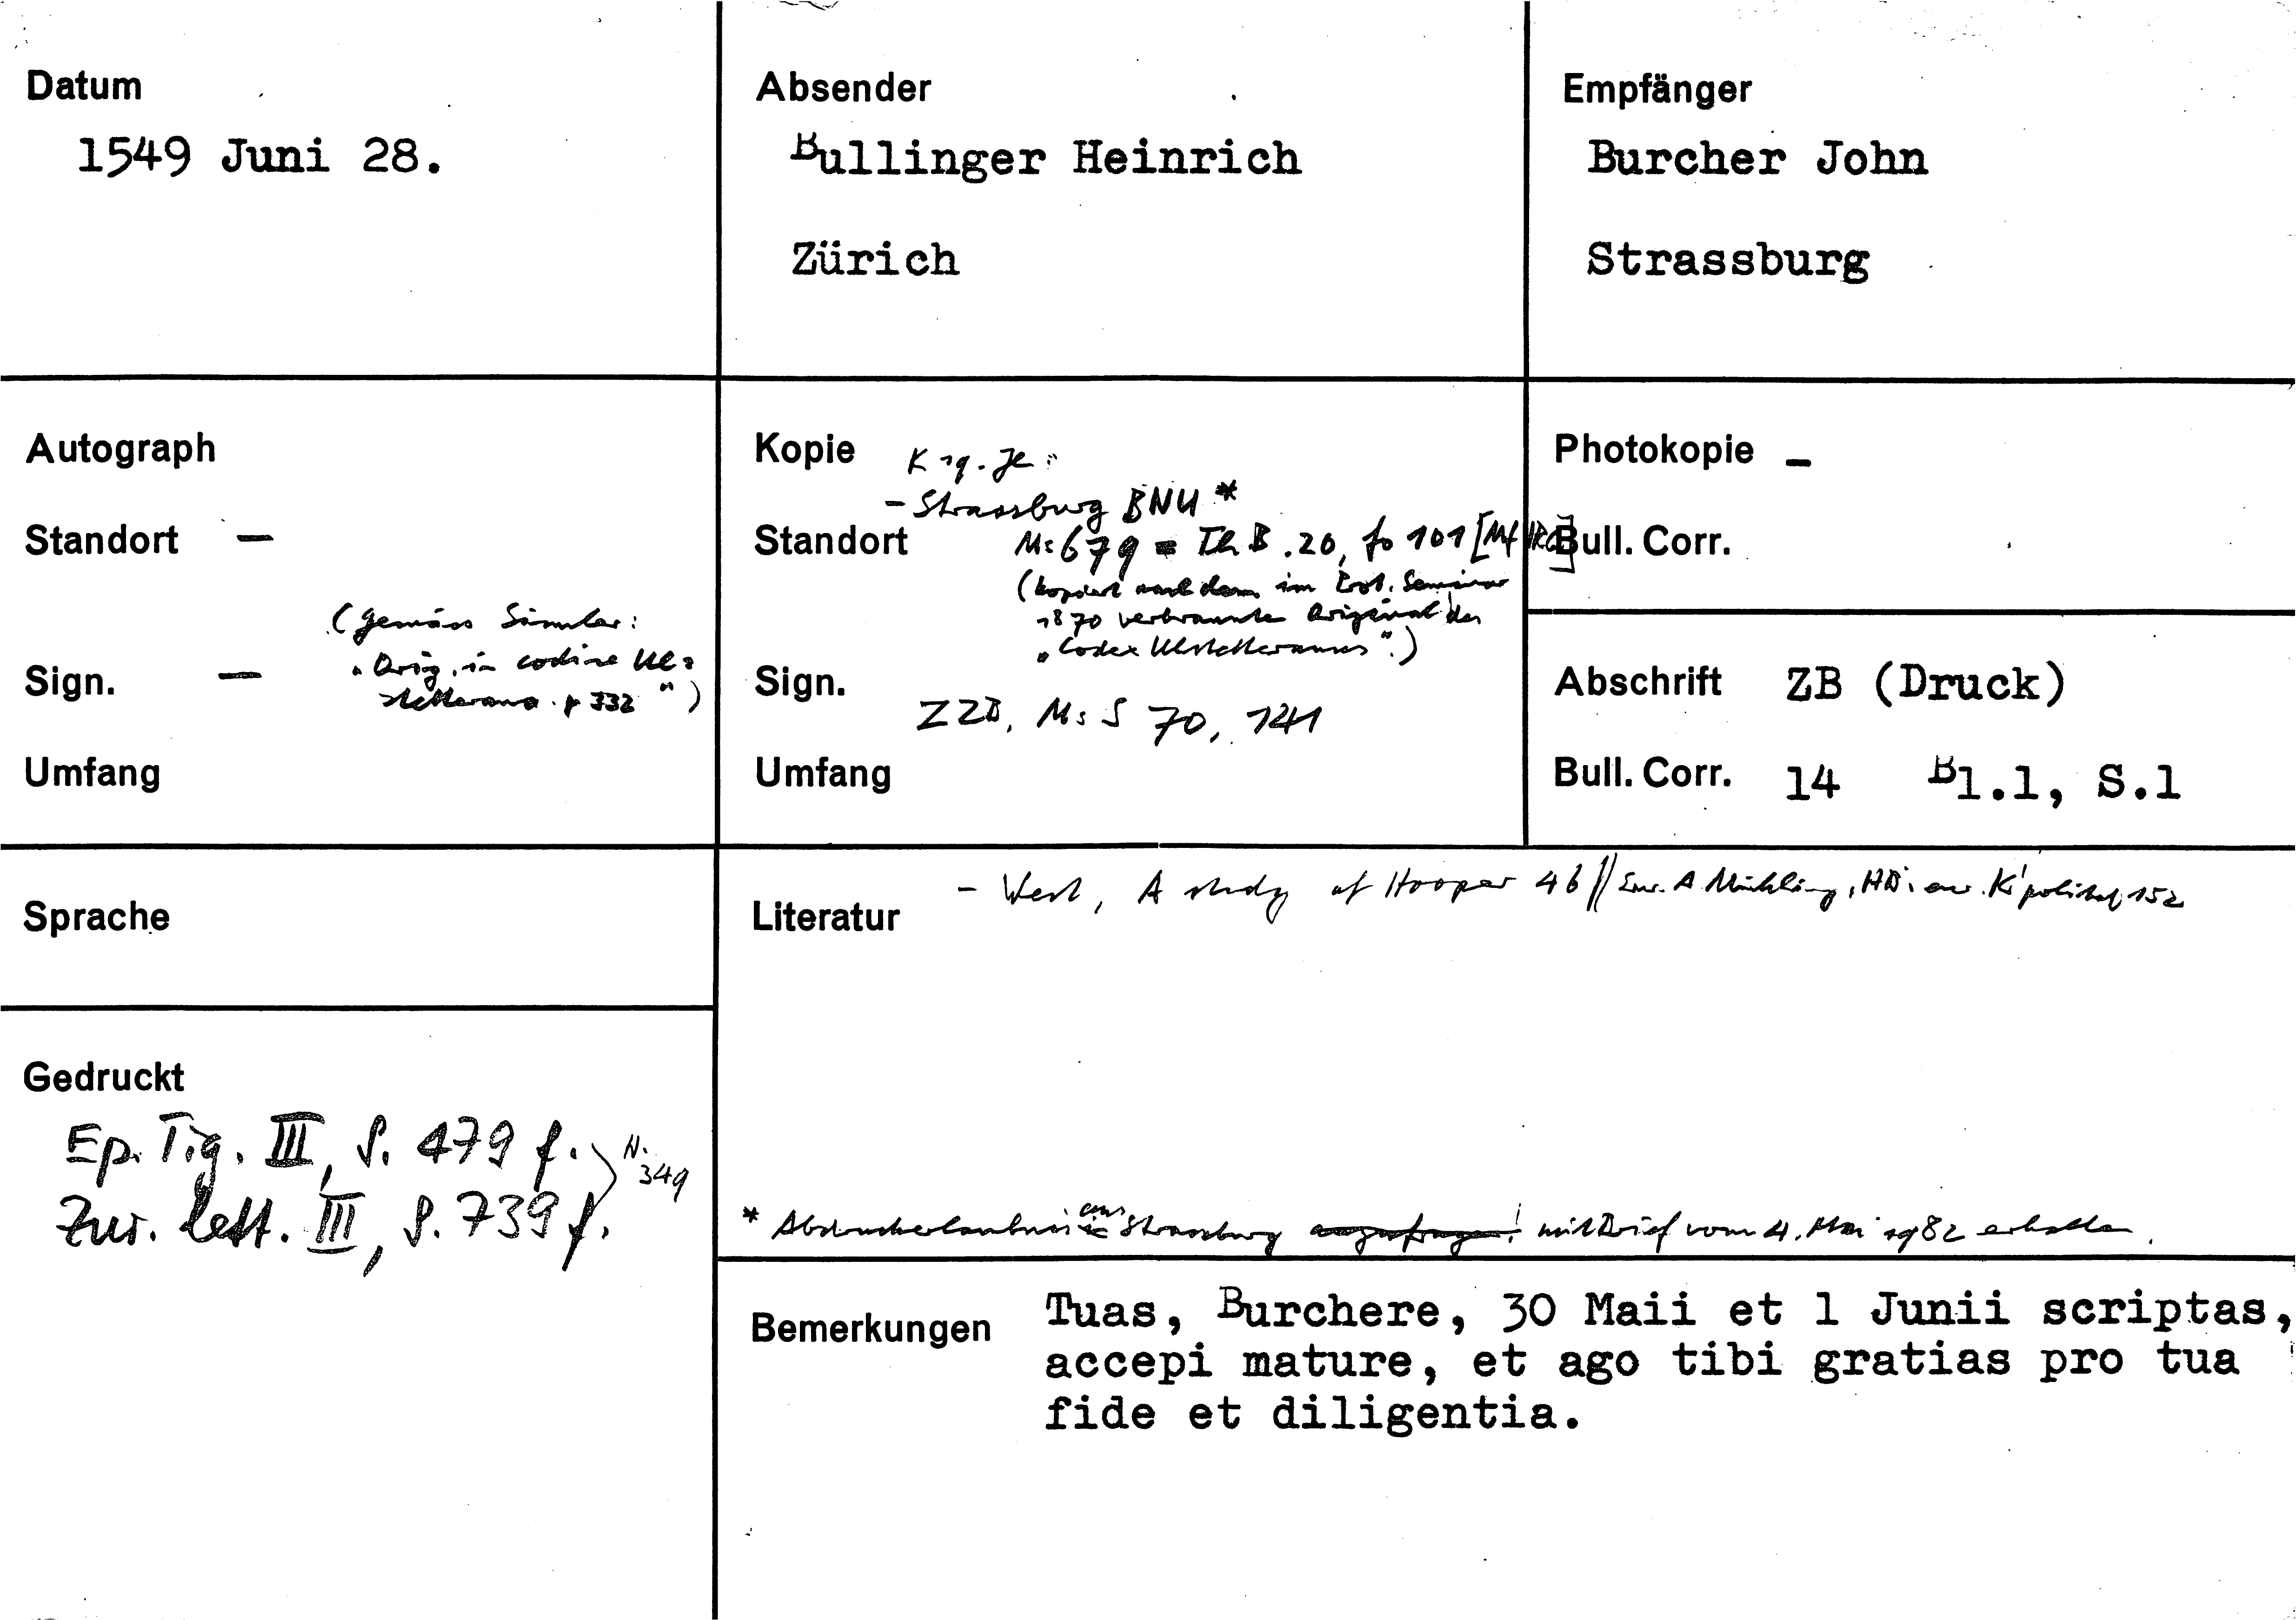 Datum
1549 Juni 28.
Absender
Bullinger Heinrich
Zürich
Empfänger
Burcher John
Strassburg
Autograph
Standort —
(Gemäss Simler:
"Orig. in codice Ul=
stetterano. p 332")
Sign. —
Umfang
Kopie
- Strassburg BNU *
Standort
Ms 679 = Th B .20, fo 101 [Mf IRG]
(kopiert nach dem im Prot. Seminar
1870 verbrannten Original des
"Codex Ulstetteranus".)
Sign.
ZZB, Ms S 70, 141
Umfang
Photokopie –
Bull. Corr.
Abschrift ZB (Druck)
Bull. Corr. 14 Bl.1, S.1
Sprache
Literatur
- West, A study of Hooper 46 // A. Mühling, HB's K'politik, 152
Gedruckt
Ep. Tig. III, S. 479 f.
N. 349
Zur. lett. III, S. 739 f.
* Abdruckerlaubnis aus Strassburg anzufragen! mit Brief vom 4. Mai 1982 erhalten.
Bemerkungen
Tuas, Burchere, 30 Maii et 1 Junii scriptas,
accepi mature, et ago tibi gratias pro tua
fide et diligentia.